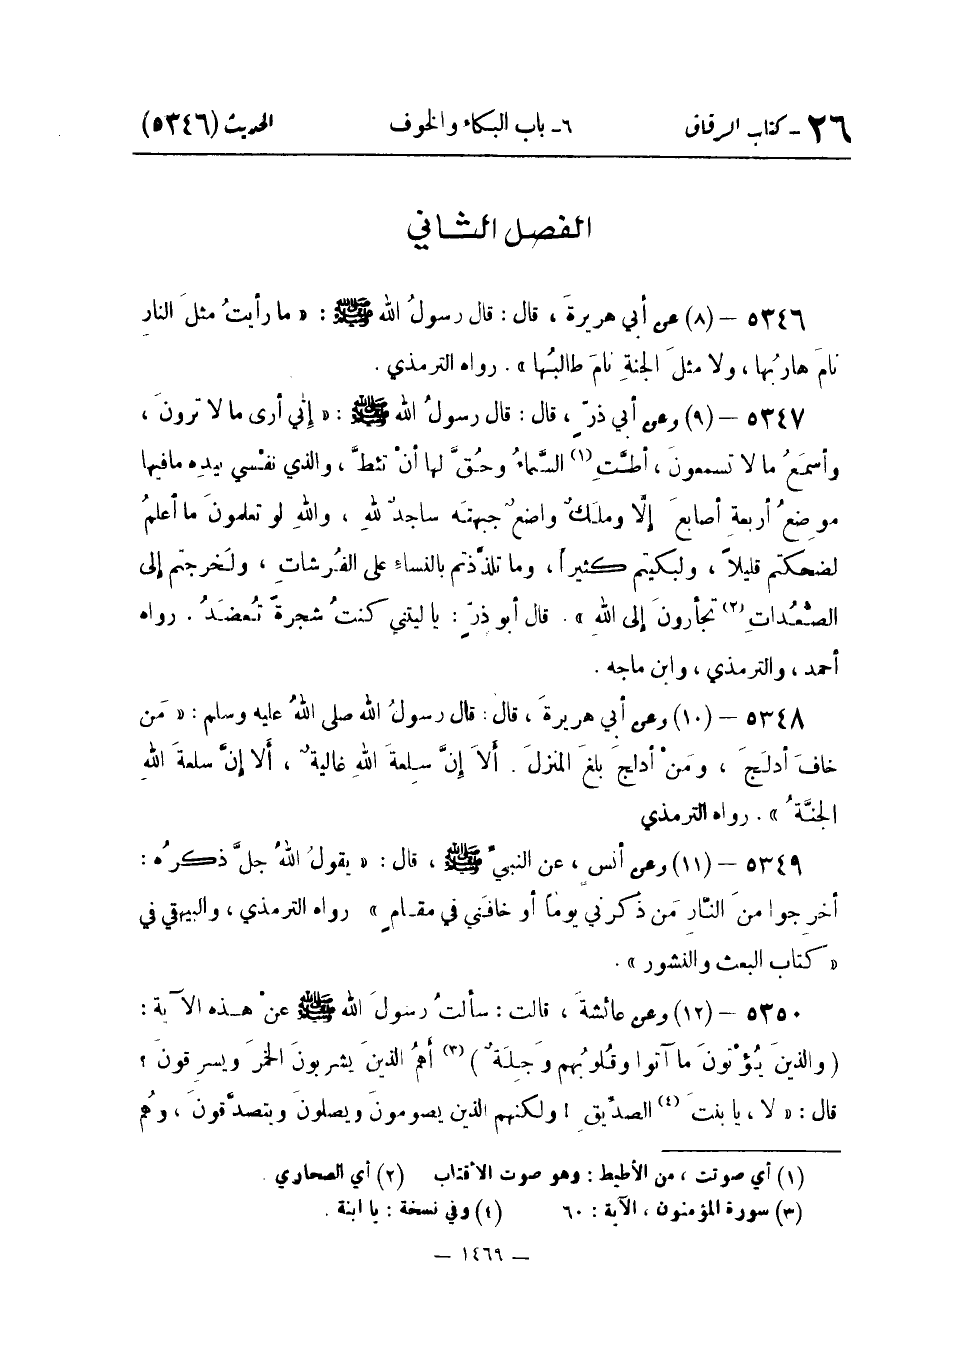 ٢٦ - كتاب الرقاق ٦ - باب البكاء والخوف الحديث (٥٣٤٦)
الفصل الثاني
٥٣٤٦ – (٨) عن أبي هريرةَ ، قال : قال رسولُ الله ﷺ : « ما رأيتُ مثلَ النارِ
نامَ هاربُها ، ولا مثلَ الجنةِ نامَ طالبُها » . رواه الترمذي .
٥٣٤٧ – (٩) وعن أبي ذرّ ٍ ، قال : قال رسولُ الله ﷺ : « إني أرى ما لا ترونَ ،
وأسمَعُ ما لا تسمعونَ ، أطَّتِ (١) السَّماءُ وحُقَّ لها أنْ تئطَّ ، والذي نفسْي بيدِه ما فيها
موضعُ أربعةِ أصابعَ إلّا وملَكٌ واضعٌ جبهتَه ساجدٌ للهِ ، واللهِ لو تعلمونَ ما أعلمُ
لضحكتم قليلاً ، ولبكيتم كثيراً ، وما تلذَّذتم بالنساءِ على الفُرشاتِ ، ولَخرجتم إلى
الصُّعُداتِ (٢) تجأرونَ إلى اللهِ » . قال أبو ذرّ ٍ : يا ليتني كنتُ شجرةً تُعضَدُ . رواه
أحمد ، والترمذي ، وابن ماجه .
٥٣٤٨ – (١٠) وعن أبي هريرةَ ، قال : قال رسولُ الله صلى اللهُ عليه وسلم : « مَن
خافَ أدلَجَ ، ومَنْ أدلجَ بلغَ المنزلَ . ألَا إنَّ سلعةَ اللهِ غاليةٌ ، ألا إنَّ سلعةَ اللهِ
الجنَّةُ » . رواه الترمذي
٥٣٤٩ – (١١) وعن أنسٍ ، عن النبيّ ﷺ ، قال : « يقولُ اللهُ جلَّ ذكرُه :
أخرِجوا منَ النَّارِ مَن ذكرَني يوماً أو خافَني في مقامٍ » رواه الترمذي ، والبيهقي في
« كتاب البعث والنشور » .
٥٣٥٠ – (١٢) وعن عائشةَ ، قالت : سألتُ رسولَ الله ﷺ عنْ هذه الآية :
( والذينَ يُؤْتونَ ما آتوا وقُلوبُهم وَجِلَةٌ ) (٣) أهمُ الذينَ يشربونَ الخمرَ ويسرِقونَ ؟
قال : « لا ، يا بنتَ (٤) الصدِّيقِ ! ولكنهم الذين يصومونَ ويصلونَ ويتصدَّقونَ ، وهُم
(١) أي صوتت ، من الأطيط : وهو صوت الأقتاب (٢) أي الصحاري .
(٣) سورة المؤمنون ، الآية : ٦٠ (٤) وفي نسخة : يا ابنة .
– ١٤٦٩ –